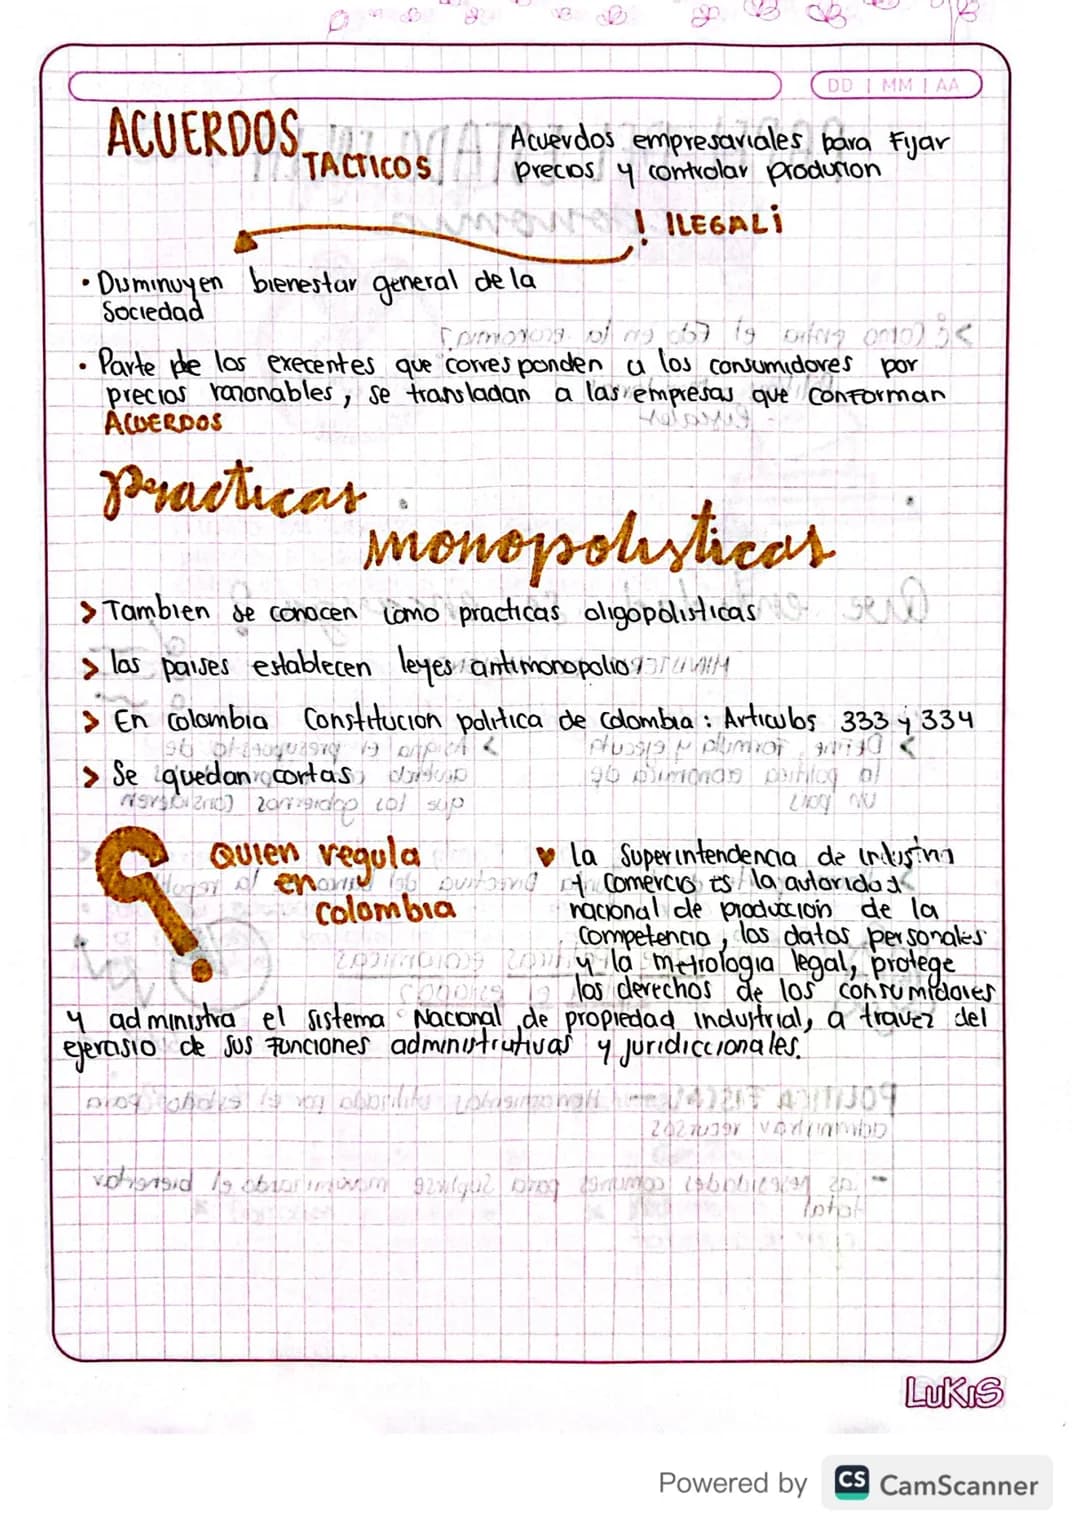 DD | MM | AA
ACUERDOS TACTICOS
Acuerdos empresariales para Fijar
precios y controlar produrion
! ILEGALi
• Disminuyen bienestar general de la
Sociedad
• Parte de los execentes que corresponden a los consumidores por
precios razonables, se transladan a las empresas que conforman
ACUERDOS
Practicas
monopolisticas
> Tambien se conocen como practicas oligopolisticas
> las paises establecen leyes antimonopolio
> En colombia Constitucion politica de colombia: Articulos 333 y 334
> Se quedan cortas
? Quien regula
en
colombia
♥ la Superintendencia de industria
y comercio es la autoridad
nacional de produccion de la
competencia, los datos personales
y la metrologia legal, protege
los derechos de los consumidores
y administra el sistema Nacional de propiedad industrial, a travez del
ejerasio de sus funciones administrutivas y juridiccionales.
LuKiS
Powered by CS CamScanner